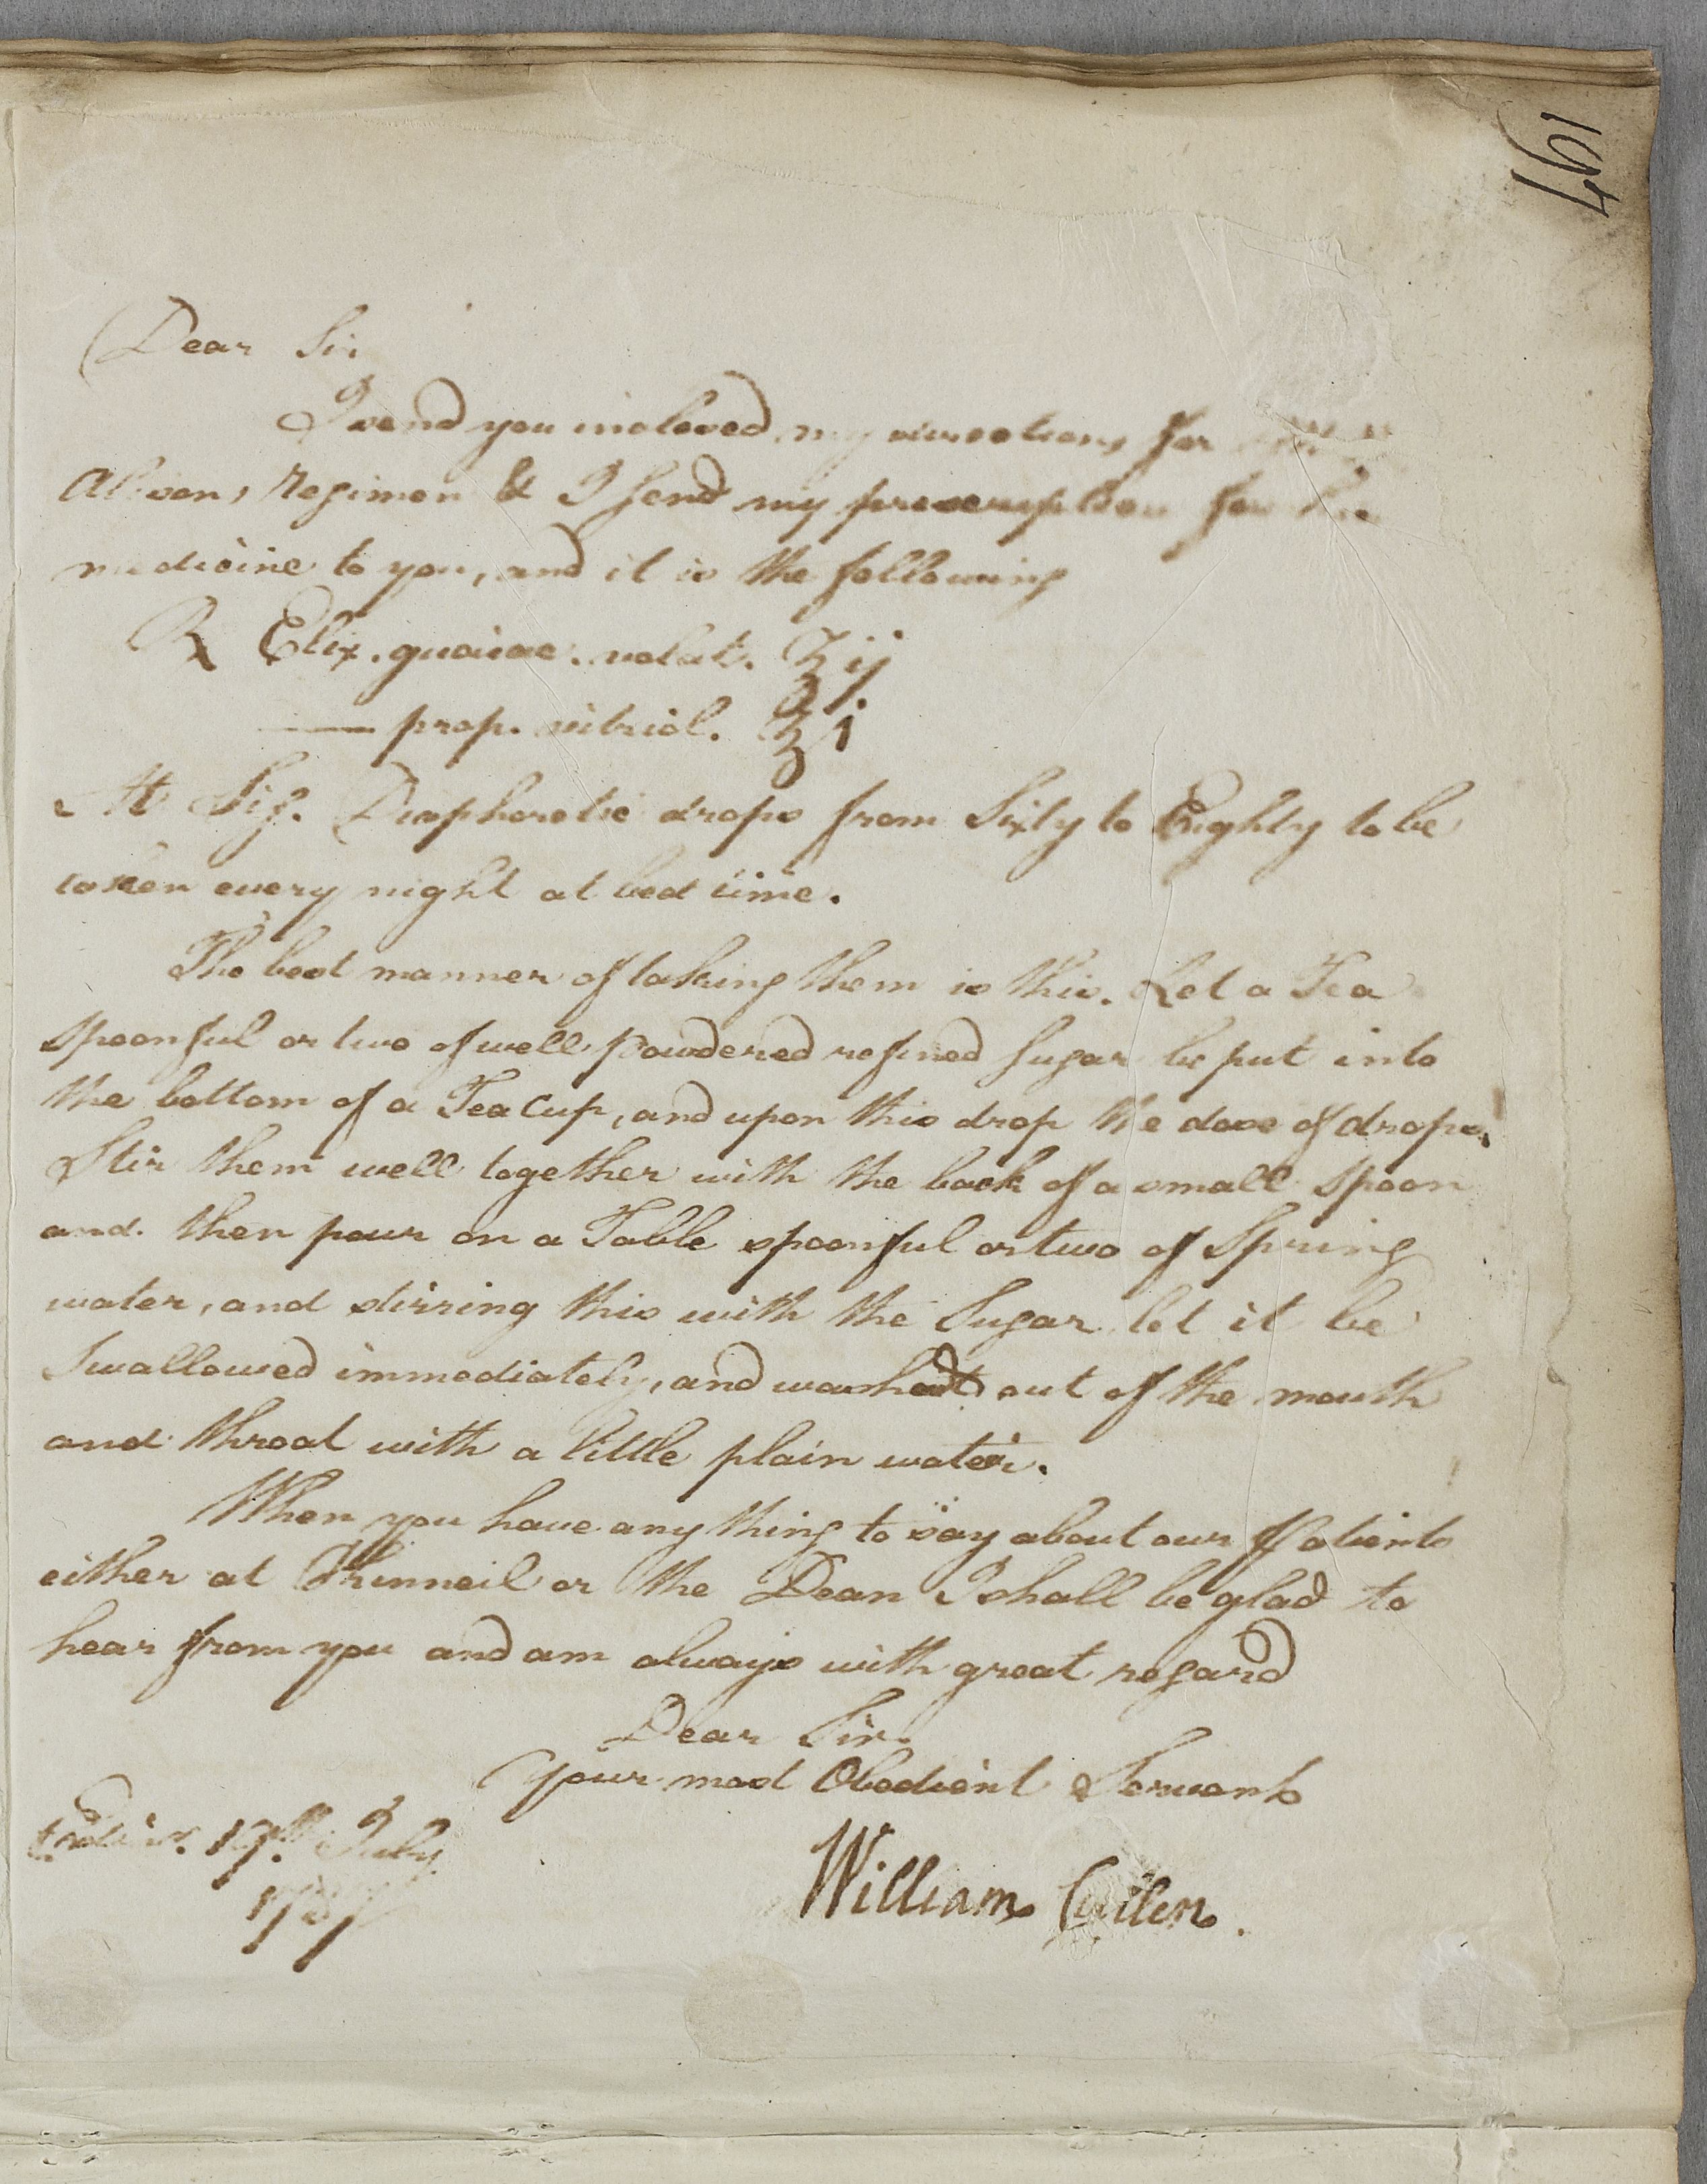 197
Dear Sir
I send you inclosed my directions for
Alison's Regimen & I send my prescription for the
medicine to you, and it is the following
℞ Elix. guaiac. volat. ℥ij
—— prop. vitriol. ℥j
M Sig. Diaphoretic drops from Sixty to Eighty to be
taken every night at bed time.
The best manner of taking them is this. Let a Tea
spoonful or two of well powdered refined Sugar be put into
the bottom of a Tea Cup, and upon this drop the dose of drops.
Stir them well together with the back of a small Spoon
and then pour on a Table spoonful or two of Spring
water, and stirring this with the Sugar let it be
Swallowed immediately, and washed out of the mouth
and throat with a little plain water.
When you have any thing to say about our Patients
either at Kinneil or the Dean I shall be glad to
hear from you and am always with great regard
Dear Sir
Your most Obedient Servant
Edinr. 19th July
1787
William Cullen.